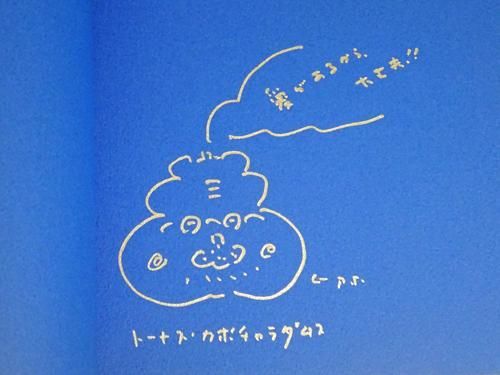 愛があるから、
大丈夫!!
トーナス・カボチャラダムス